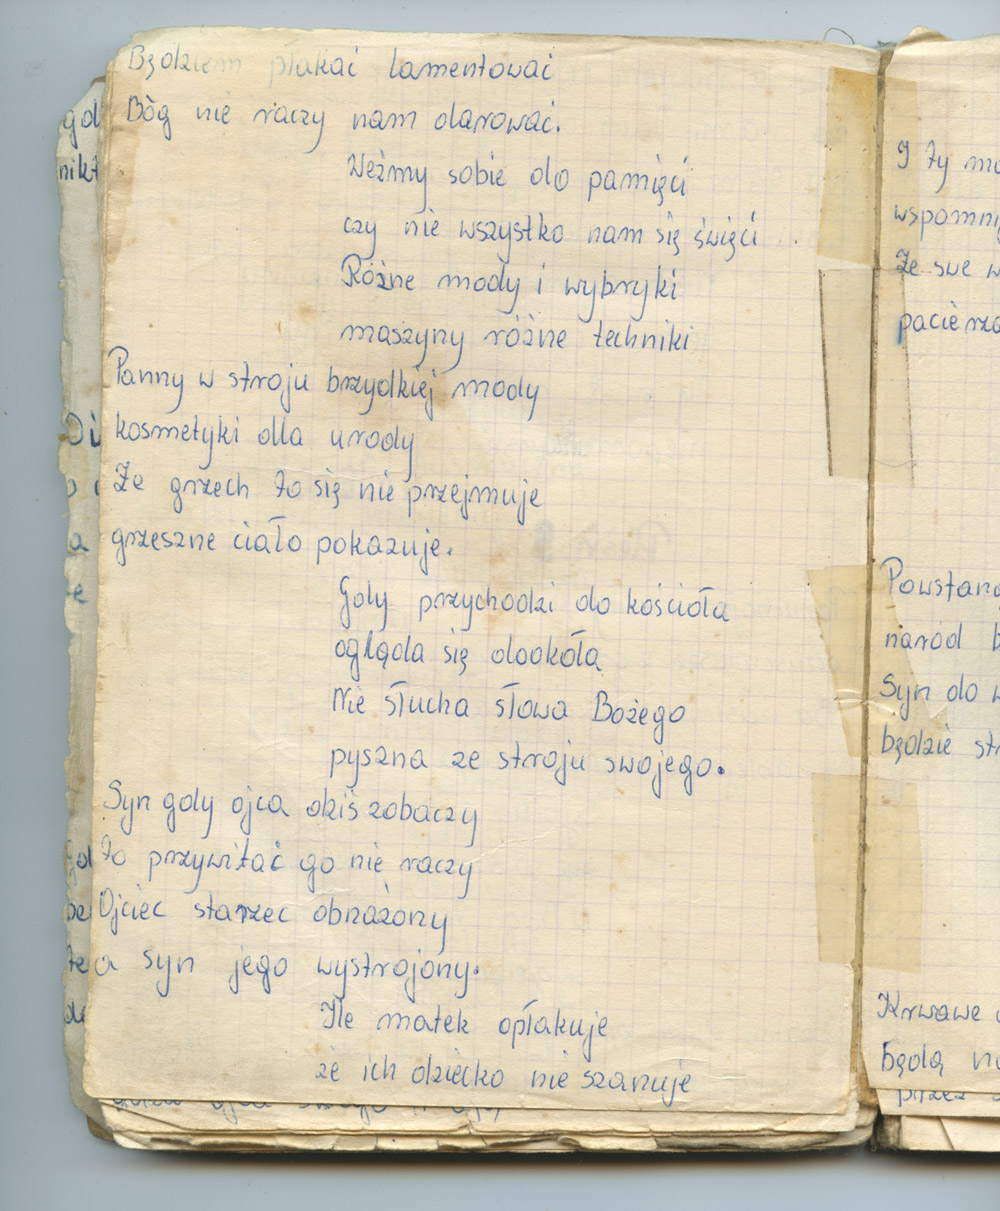 Będziem płakać lamentować
Bóg nie raczy nam darować.
Weźmy sobie do pamięci
czy nie wszystko nam się święci ..
Różne mody i wybryki
maszyny różne techniki
Panny w stroju brzydkiej mody
kosmetyki dla urody
Że grzech to się nie przejmuje
grzeszne ciało pokazuje.
Gdy przychodzi do kościoła
ogląda się dookoła
Nie słucha słowa Bożego
pyszna ze stroju swojego.
Syn gdy ojca dziś zobaczy
to przywitać go nie raczy
Ojciec starzec obnażony
a syn jego wystrojony.
Ile matek opłakuje
że ich dziecko nie szanuje
I ty
Że swe
Powstan
naród
Syn do
będzie
Krwawe
będą
przez